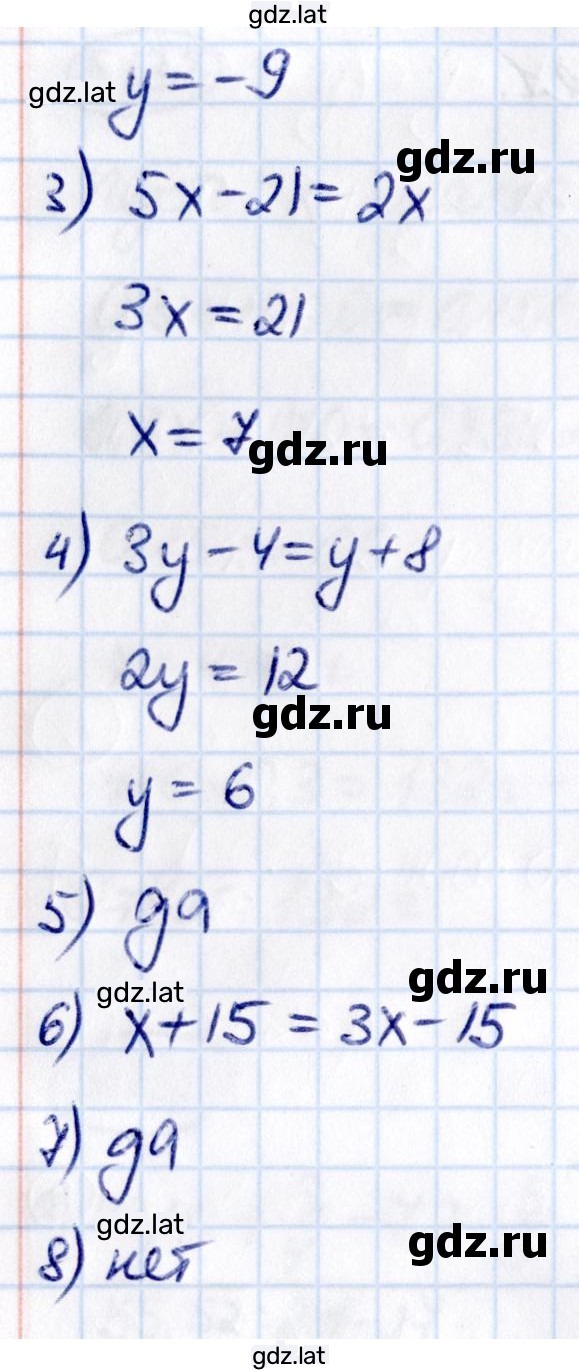 gdz.lat
gdz.lat y = -9
gdz.ru
3) 5x - 21 = 2x
3x = 21
x = 7
gdz.ru
4) 3y - 4 = y + 8
2y = 12
gdz.ru
y = 6
5) да
gdz.lat gdz.ru
6) x + 15 = 3x - 15
7) да
gdz.lat gdz.ru
8) нет
gdz.lat